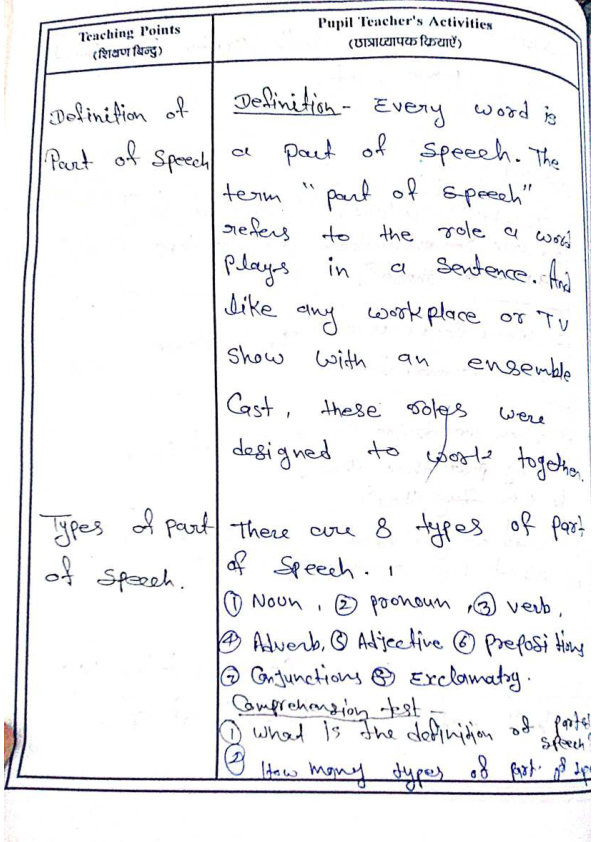 Teaching Points
(शिक्षण बिन्दु)
Pupil Teacher's Activities
(छात्राध्यापक क्रियाएँ)
Definition of
Part of Speech
Definition - Every word is
a part of speech. The
term "part of speech"
refers to the role a word
plays in a sentence. And
like any workplace or TV
show with an ensemble
Cast, these roles were
designed to work together.
Types of part
of speech.
There are 8 types of part
of speech.
① Noun, ② pronoun, ③ verb,
④ Adverb, ⑤ Adjective ⑥ prepositions
⑦ Conjunctions ⑧ Exclamatry.
Comprehension test -
① What is the definition of parts
speech
② How many types of part of